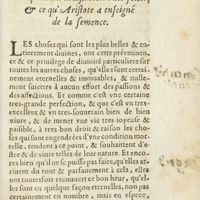 & ce qu'Aristote a enseigné
de la semence.
LES choses qui sont les plus belles & en-
tierement divines, ont cette préeminen-
ce & ce privilege de divinité particuliere sur
toutes les autres choses, qu'elles sont certai-
nement eternelles & immuables, & nulle-
ment sujettes à aucun effort des passions &
des affections. Et comme c'est vne certaine
tres-grande perfection, & que c'est vn tres-
excellent & vn tres-souverain bien de bien
vivre, & de mener vne vie tres-joyeuse &
paisible, à tres bon droit & raison les cho-
ses qui sont engendrées d'vne condition mor-
telle, tendent à ce point, & souhaittent d'e-
stre & de vivre telles de leur nature. Et enco-
res bien qu'il ne se puisse pas faire, qu'elles ar-
rivent du tout & parfaitement à cela, elles
ont toutesfois recouvert ce bon heur, qu'el-
les sont en quelque façon eternelles, non pas
certainement en nombre, mais en espece,